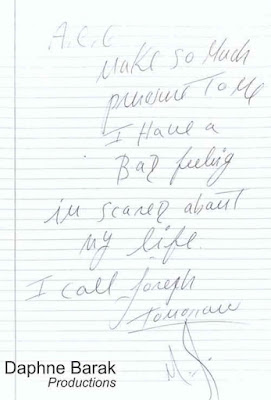 A.E.G
Make so Much
pressure To Me
I Have a
BaD feeling
im scared about
my life.
I call Joseph
Tomorrow
M.J.
Daphne Barak
Productions